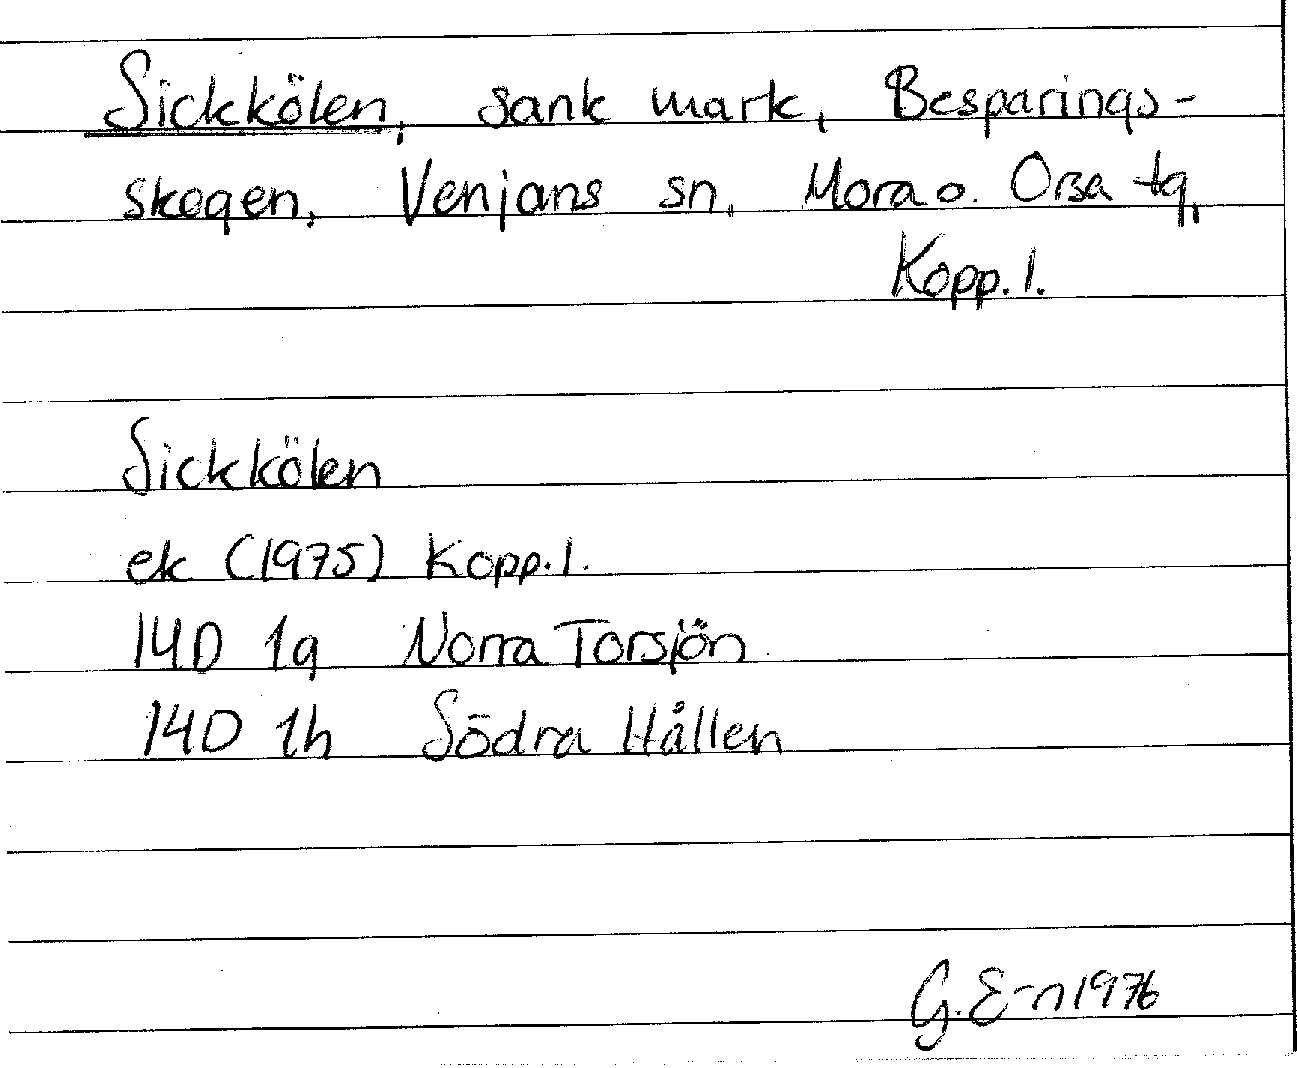 Sickkölen, sank mark, Besparings-
skogen, Venjans sn, Mora o. Orsa tg,
Kopp. l.
Sickkölen
ek (1975) Kopp. l.
14D 1g Norra Torsjön
14D 1h Södra Hållen
G. E-n 1976